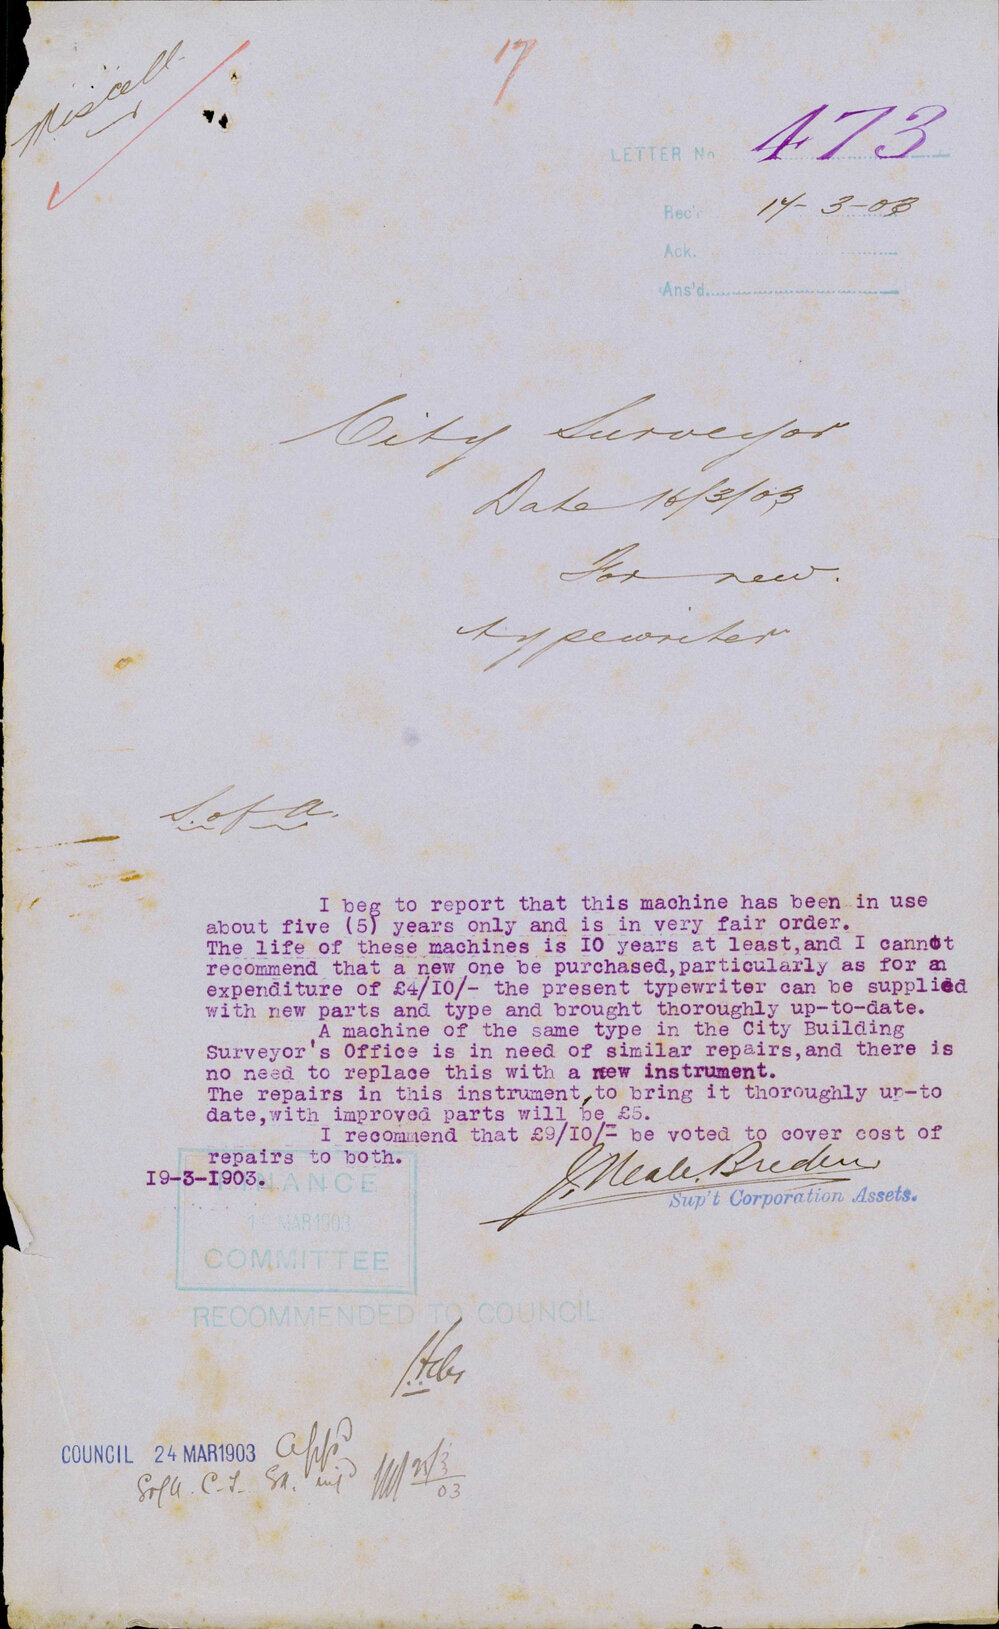 Miscell.
17
LETTER No 473
Rec'd 17-3-03
Ack.
Ans'd
City Surveyor
Date 16/3/03
For new.
typewriter
S. of A.
I beg to report that this machine has been in use
about five (5) years only and is in very fair order.
The life of these machines is IO years at least,and I cannot
recommend that a new one be purchased,particularly as for an
expenditure of £4/IO/- the present typewriter can be supplied
with new parts and type and brought thoroughly up-to-date.
A machine of the same type in the City Building
Surveyor's Office is in need of similar repairs,and there is
no need to replace this with a new instrument.
The repairs in this instrument,to bring it thoroughly up-to
date,with improved parts will be £5.
I recommend that £9/IO/- be voted to cover cost of
repairs to both.
I9-3-I903.
J. Neale Breden
Sup't Corporation Assets.
FINANCE
MAR 1903
COMMITTEE
RECOMMENDED TO COUNCIL
COUNCIL 24 MAR 1903 App'd
S of A. C.T.
03